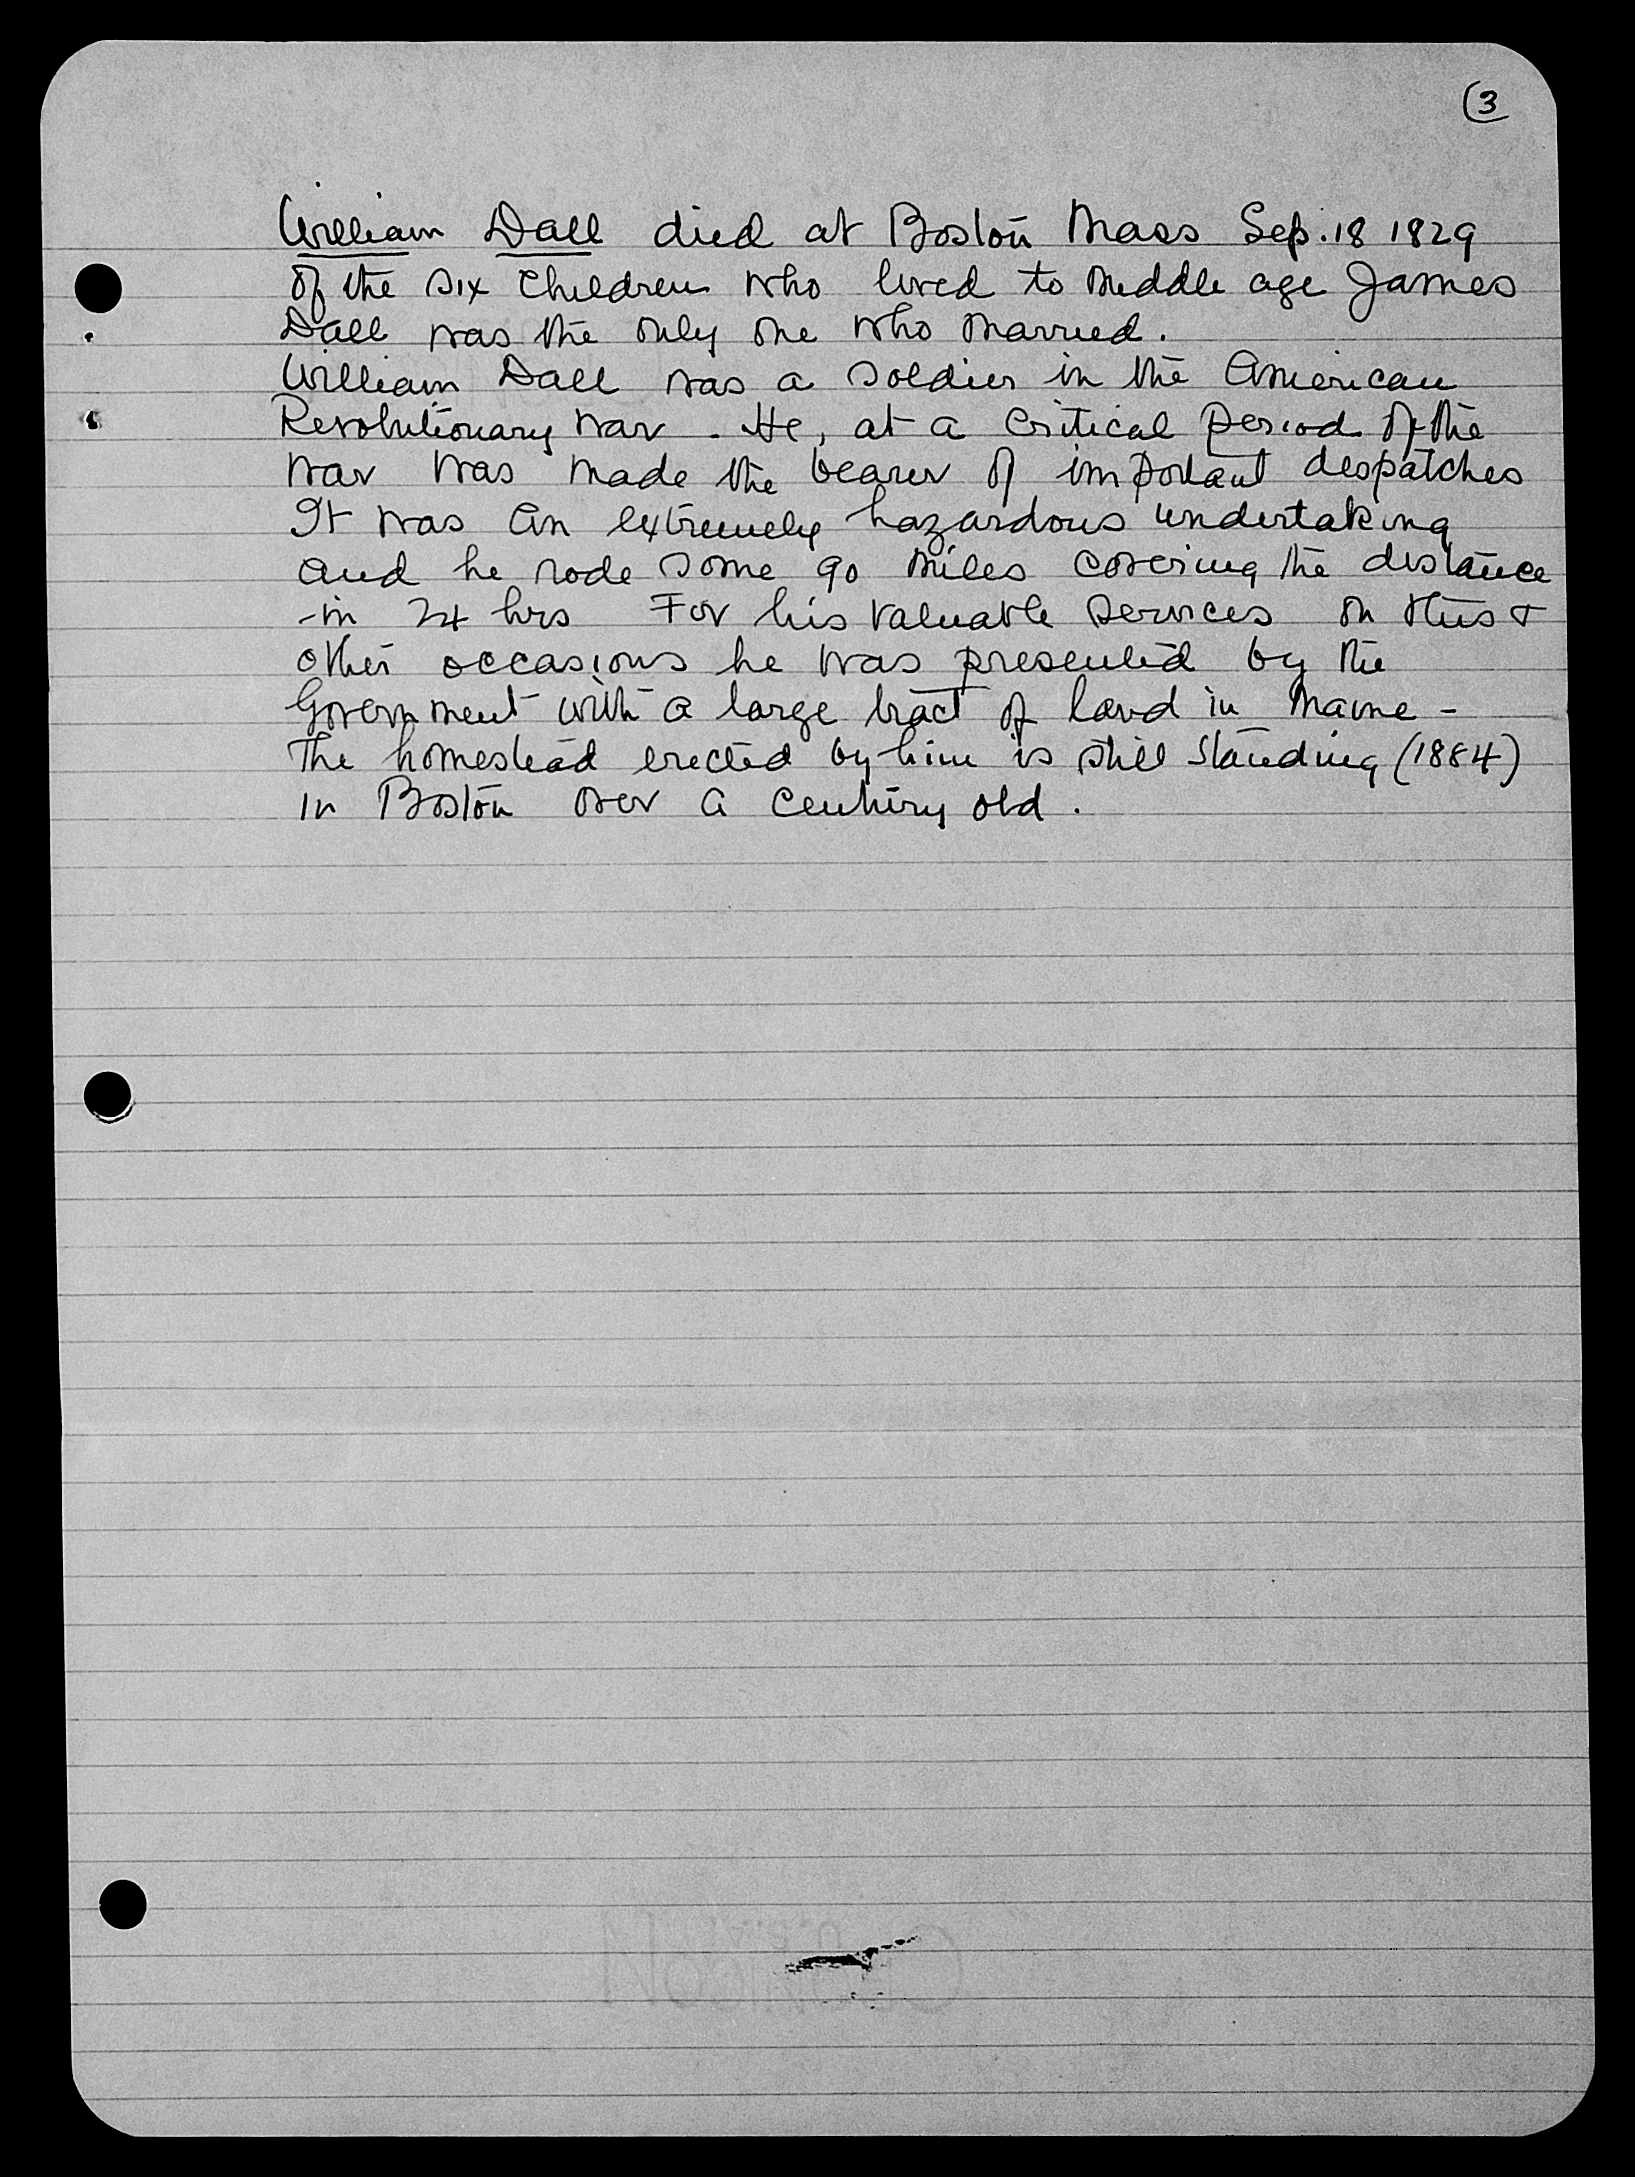 3
William Dall died at Boston Mass Sep. 18 1829
of the six children who lived to middle age James
Dall was the only one who married.
William Dall was a soldier in the American
Revolutionary war. He, at a critical period of the
war was made the bearer of important despatches
It was an extremely hazardous undertaking
and he rode some 90 miles covering the distance
-in 24 hrs For his valuable services on this &
other occasions he was presented by the
Government with a large tract of land in Maine -
The homestead erected by him is still standing (1884)
in Boston over a century old.